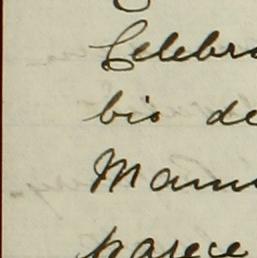 Celebra
bio de
Manu
parece